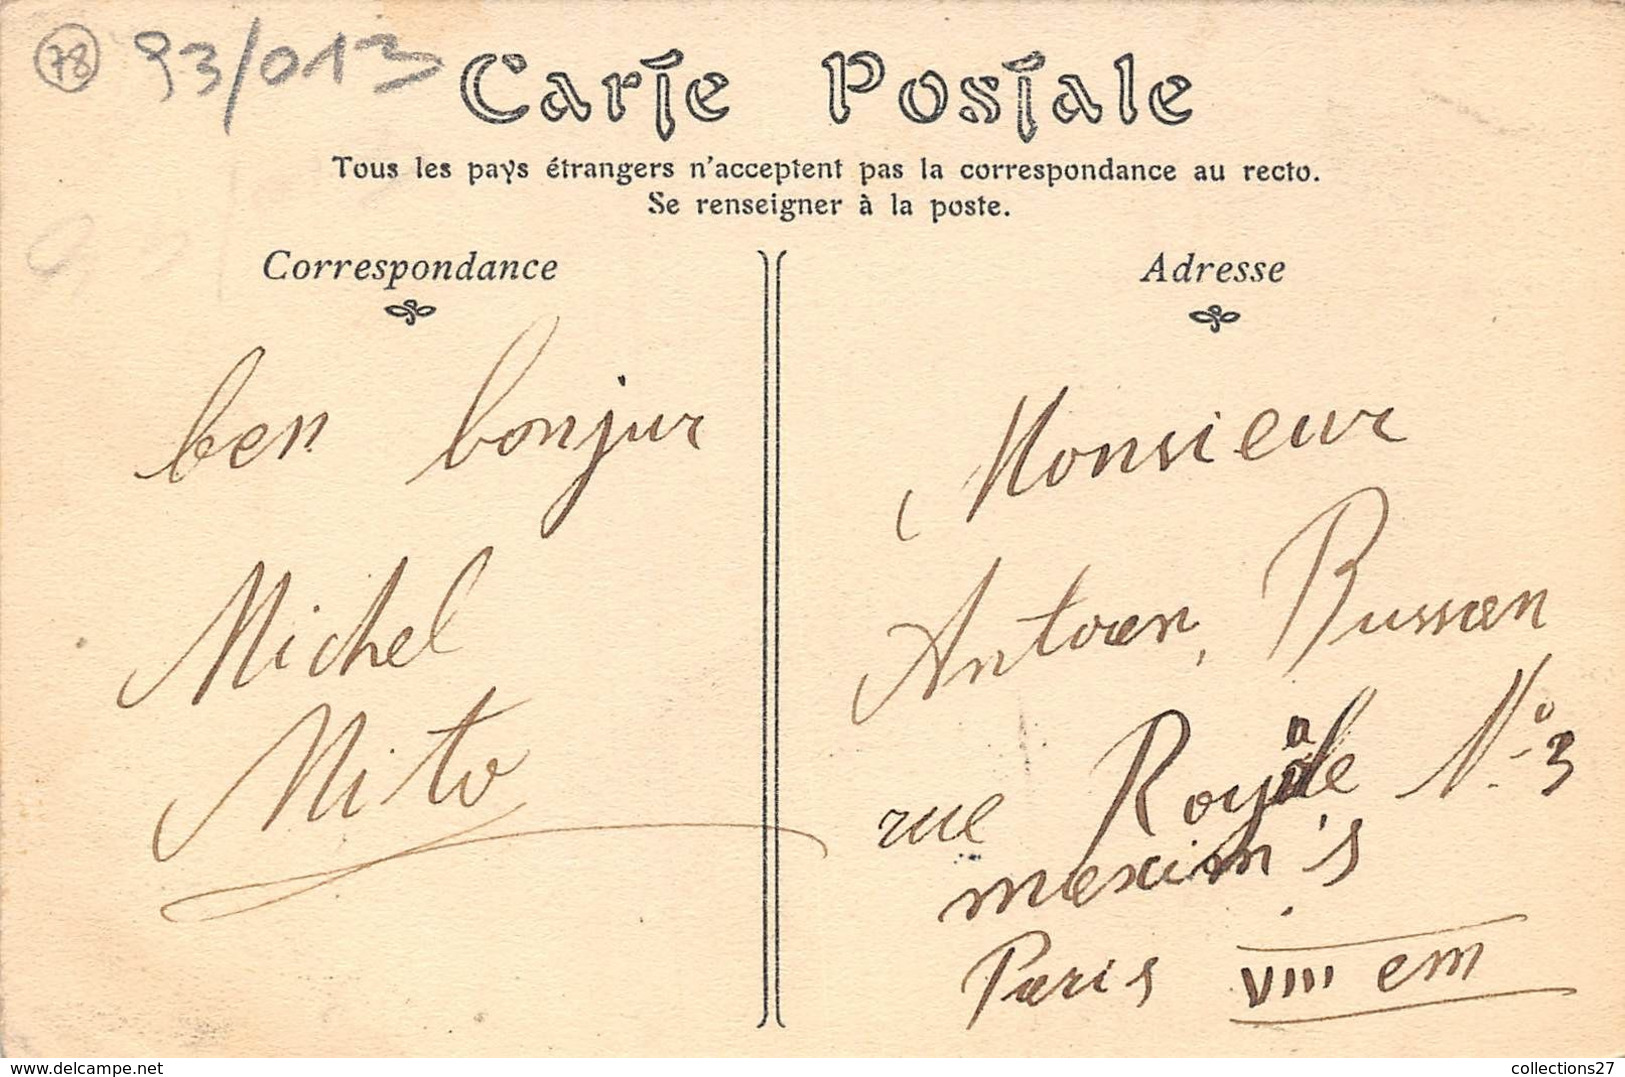 78 93/013
Carte Postale
Tous les pays étrangers n'acceptent pas la correspondance au recto.
Se renseigner à la poste.
Correspondance
ben bonjur
Michel
Nito
Adresse
Monsieur
Antoan, Bussan
rue Royale No 3
maxim's
Paris VIII em
www.delcampe.net
collections27